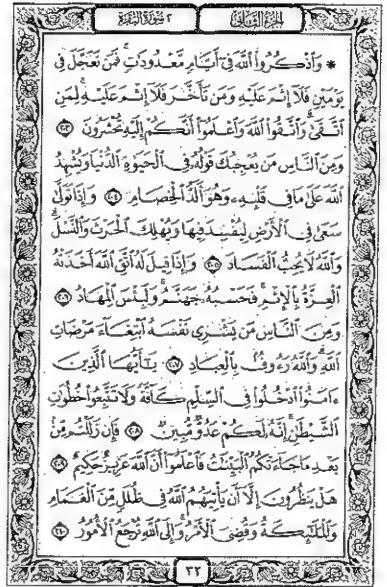 الجزء الثاني
٢ سورة البقرة
* وَاذْكُرُوا اللَّهَ فِي أَيَّامٍ مَّعْدُودَاتٍ فَمَن تَعَجَّلَ فِي
يَوْمَيْنِ فَلَا إِثْمَ عَلَيْهِ وَمَن تَأَخَّرَ فَلَا إِثْمَ عَلَيْهِ لِمَنِ
اتَّقَىٰ وَاتَّقُوا اللَّهَ وَاعْلَمُوا أَنَّكُمْ إِلَيْهِ تُحْشَرُونَ ٢٠٣
وَمِنَ النَّاسِ مَن يُعْجِبُكَ قَوْلُهُ فِي الْحَيَوٰةِ الدُّنْيَا وَيُشْهِدُ
اللَّهَ عَلَىٰ مَا فِي قَلْبِهِ وَهُوَ أَلَدُّ الْخِصَامِ ٢٠٤ وَإِذَا تَوَلَّىٰ
سَعَىٰ فِي الْأَرْضِ لِيُفْسِدَ فِيهَا وَيُهْلِكَ الْحَرْثَ وَالنَّسْلَ
وَاللَّهُ لَا يُحِبُّ الْفَسَادَ ٢٠٥ وَإِذَا قِيلَ لَهُ اتَّقِ اللَّهَ أَخَذَتْهُ
الْعِزَّةُ بِالْإِثْمِ فَحَسْبُهُ جَهَنَّمُ وَلَبِئْسَ الْمِهَادُ ٢٠٦
وَمِنَ النَّاسِ مَن يَشْرِي نَفْسَهُ ابْتِغَاءَ مَرْضَاتِ
اللَّهِ وَاللَّهُ رَءُوفٌ بِالْعِبَادِ ٢٠٧ يَٰأَيُّهَا الَّذِينَ
ءَامَنُوا ادْخُلُوا فِي السِّلْمِ كَافَّةً وَلَا تَتَّبِعُوا خُطُوَٰتِ
الشَّيْطَٰنِ إِنَّهُ لَكُمْ عَدُوٌّ مُّبِينٌ ٢٠٨ فَإِن زَلَلْتُم مِّنْ
بَعْدِ مَا جَاءَتْكُمُ الْبَيِّنَٰتُ فَاعْلَمُوا أَنَّ اللَّهَ عَزِيزٌ حَكِيمٌ ٢٠٩
هَلْ يَنظُرُونَ إِلَّا أَن يَأْتِيَهُمُ اللَّهُ فِي ظُلَلٍ مِّنَ الْغَمَامِ
وَالْمَلَٰئِكَةُ وَقُضِيَ الْأَمْرُ وَإِلَى اللَّهِ تُرْجَعُ الْأُمُورُ ٢١٠
٣٢